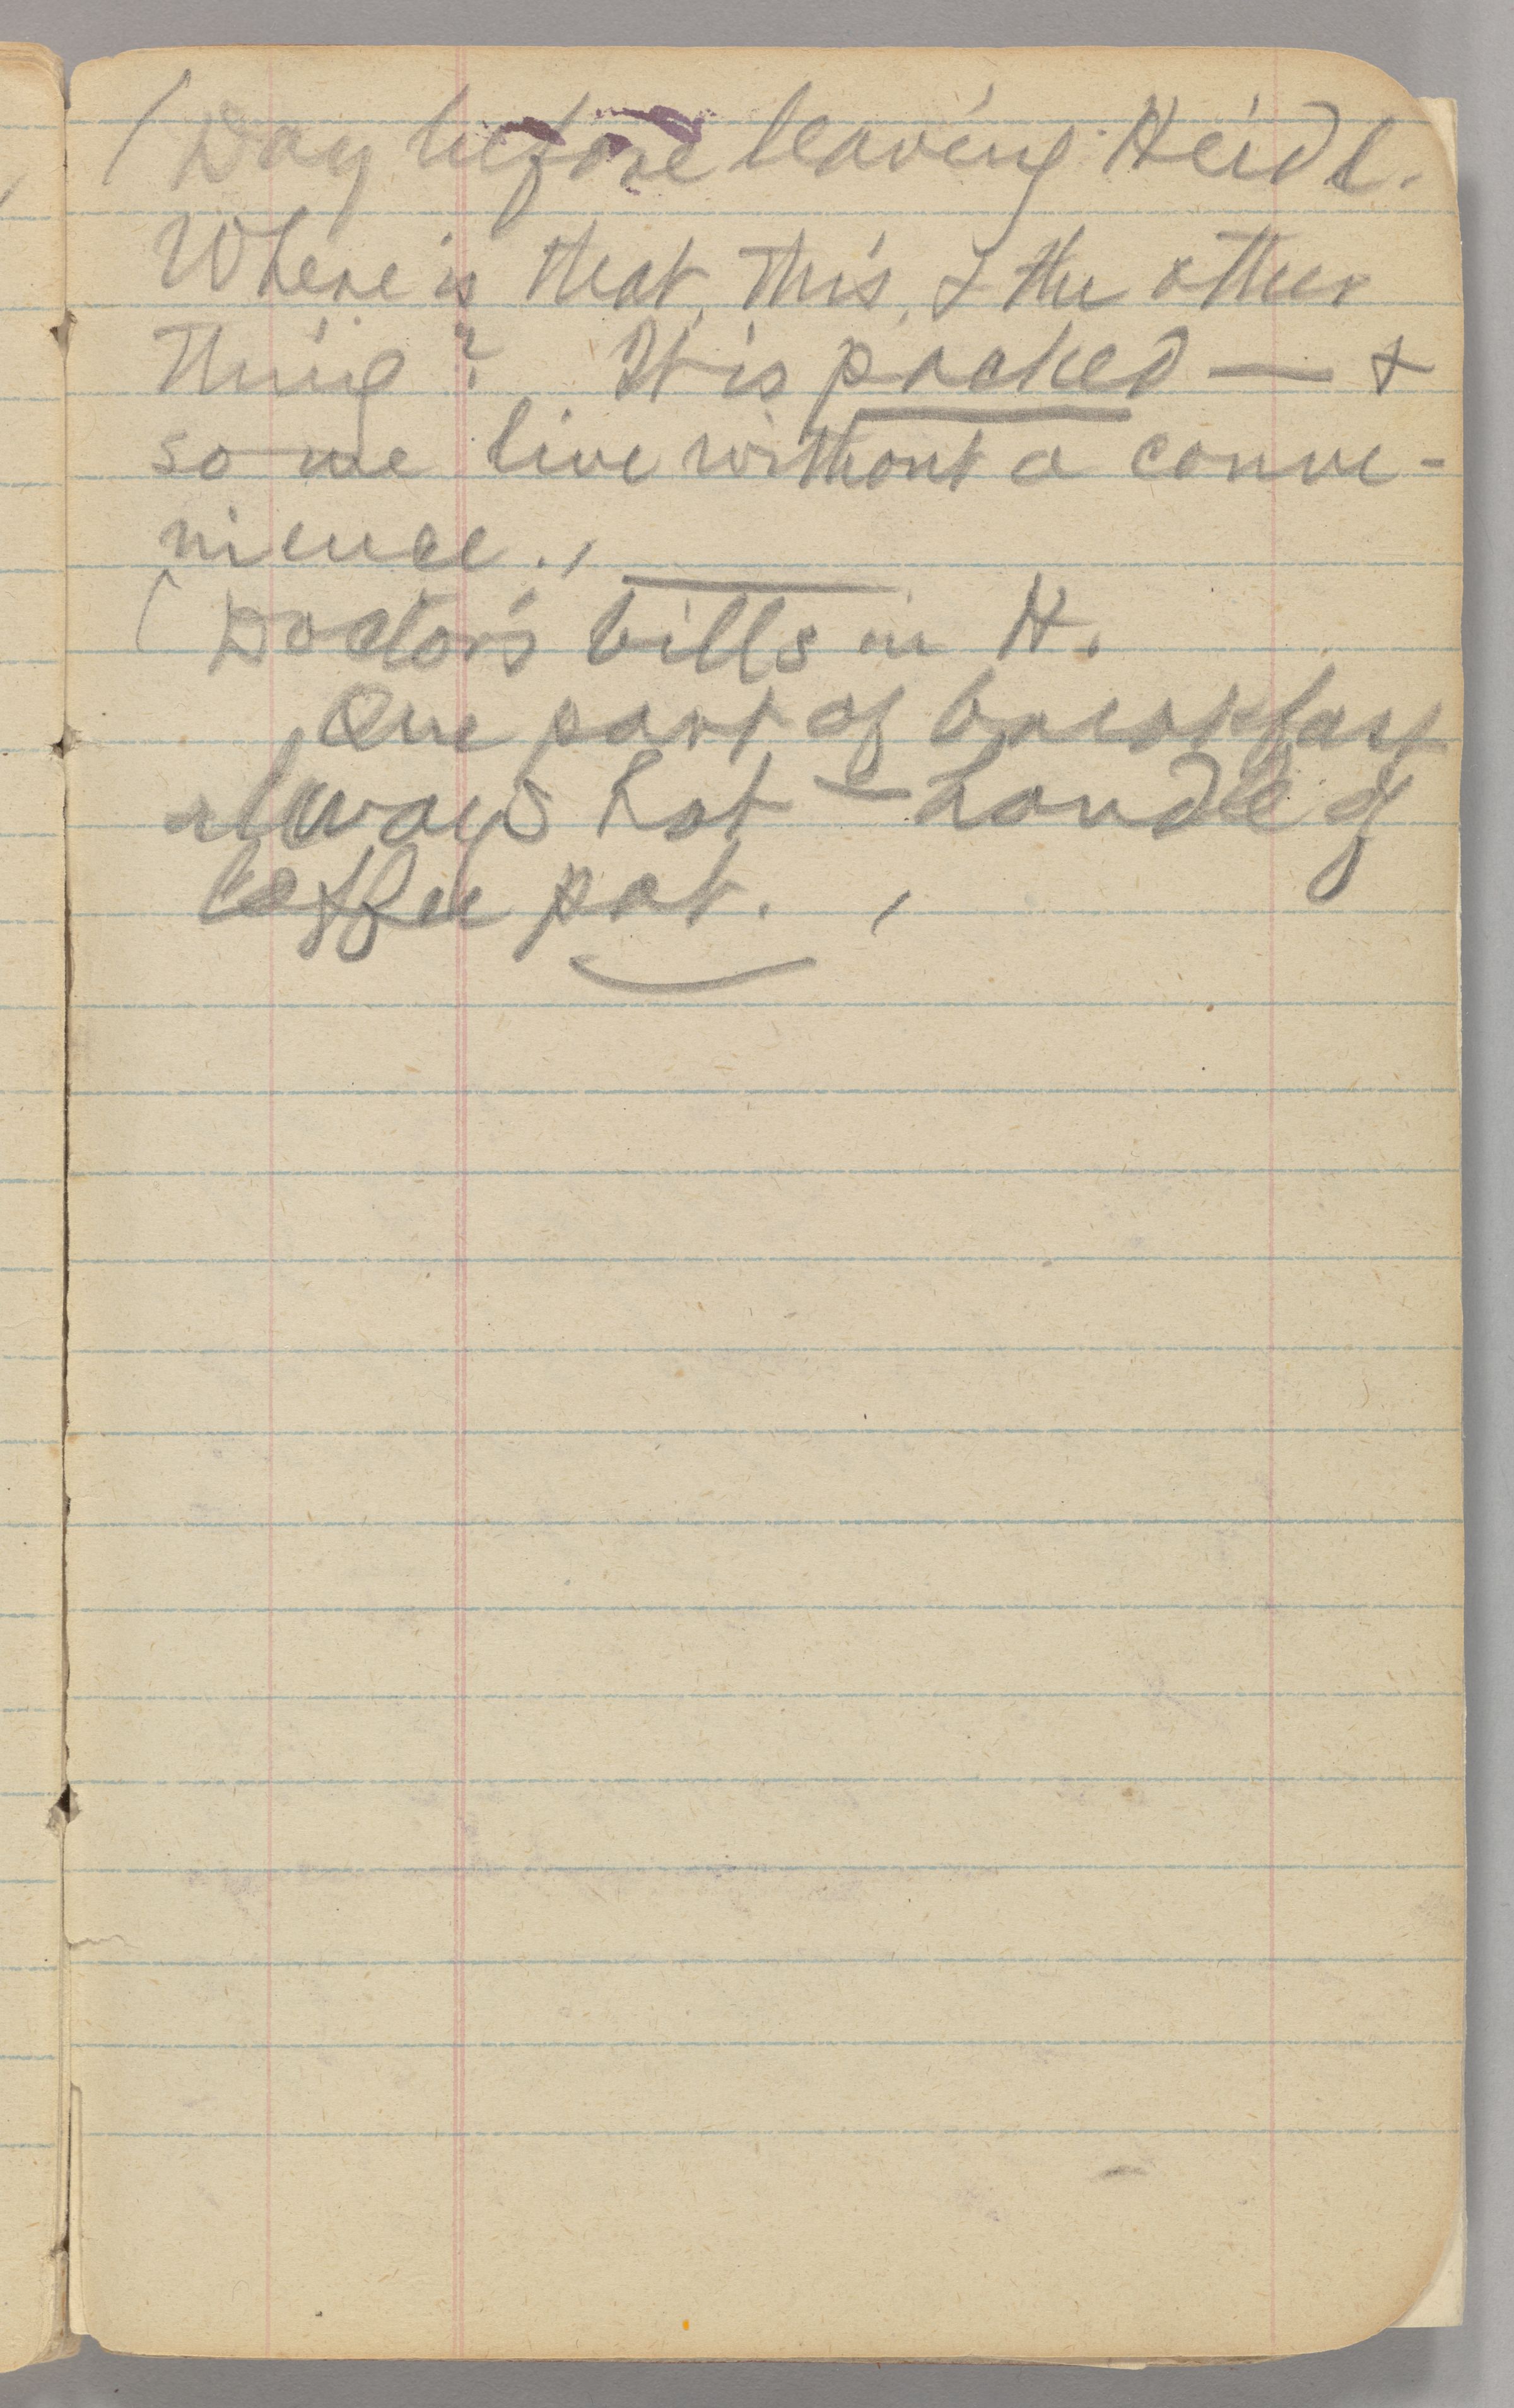 (Day before leaving Heidl.
Where is that, this, & the other
thing? It is packed — &
so we live without a conve-
nience.,
(Doctor's bills in H.
One part of breakfast
always hot — handle of
coffee pot. ,